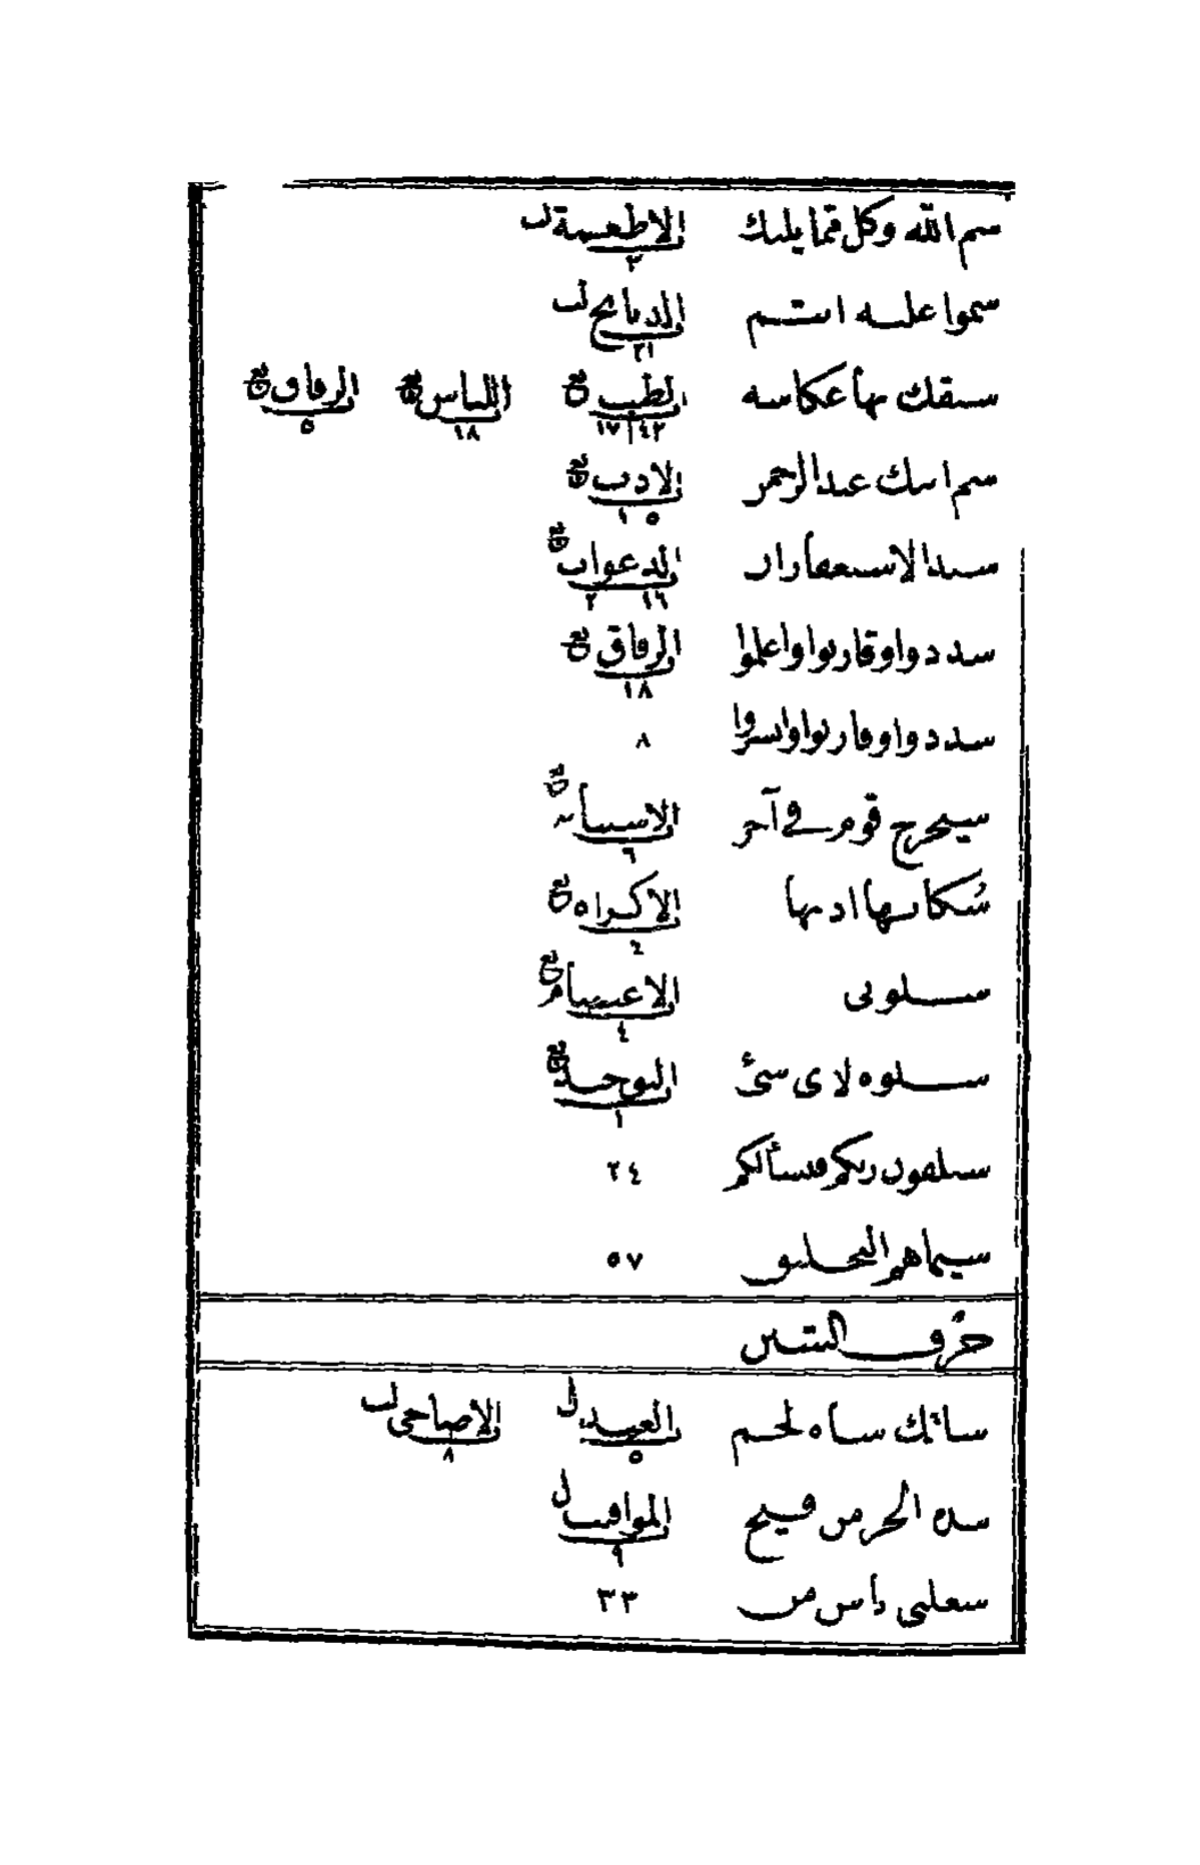 سم الله وكل مما يليك الاطعمة ٣
سموا عليه انتم الذبايح ٢١
سبقك بها عكاشه الطب ٤٢ ١٧ اللباس ١٨ الرقاق ٥
سم ابنك عبد الرحمن الادب ١٠٥
سيد الاستغفار ان الدعوات ١٦ ٢
سددوا وقاربوا واعلموا الرقاق ١٨
سددوا وقاربوا وابشروا ٨
سيخرج قوم في آخر ٦
سكاتها اذنها الاكراه ٤
سلوني الاعتصام ٤
سلوه لاى شئ التوحيد ١
ستلقون ربكم فيسألكم ٢٤
سيماهم التحليق ٥٧
حرف الشين
شاتك شاة لحم العيدين ٥ الاضاحى ٨
شدة الحر من فيح المواقيت ٩
شغلنى ناس من ٣٣